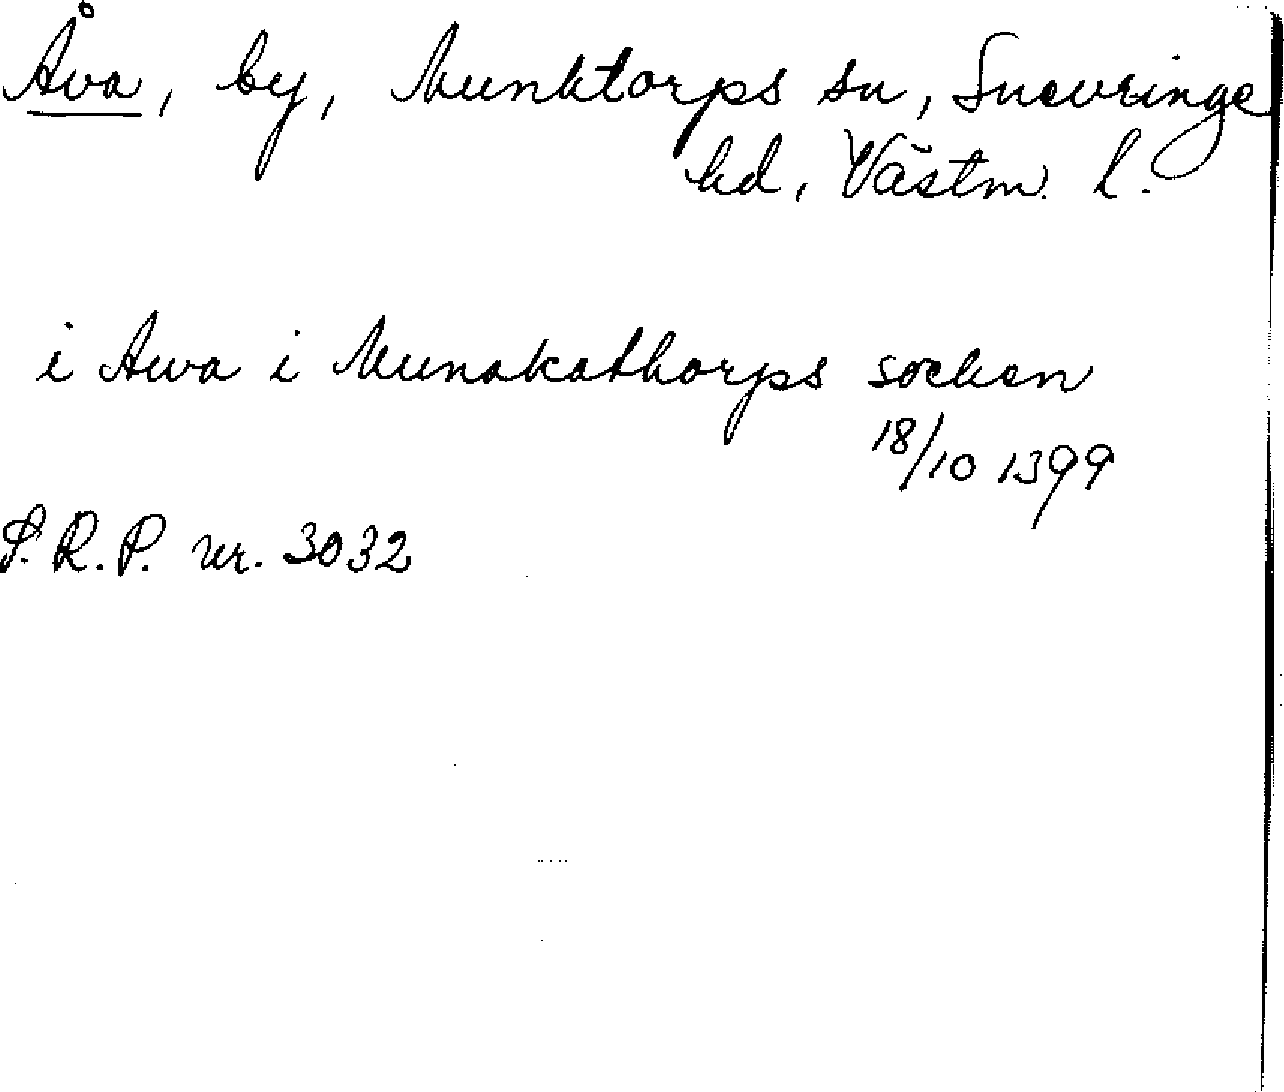 Åva, by, Munktorps sn, Snevringe
hd, Västm. l.
i Awa i Munakathorps socken
18/10 1399
S.R.P. nr. 3032